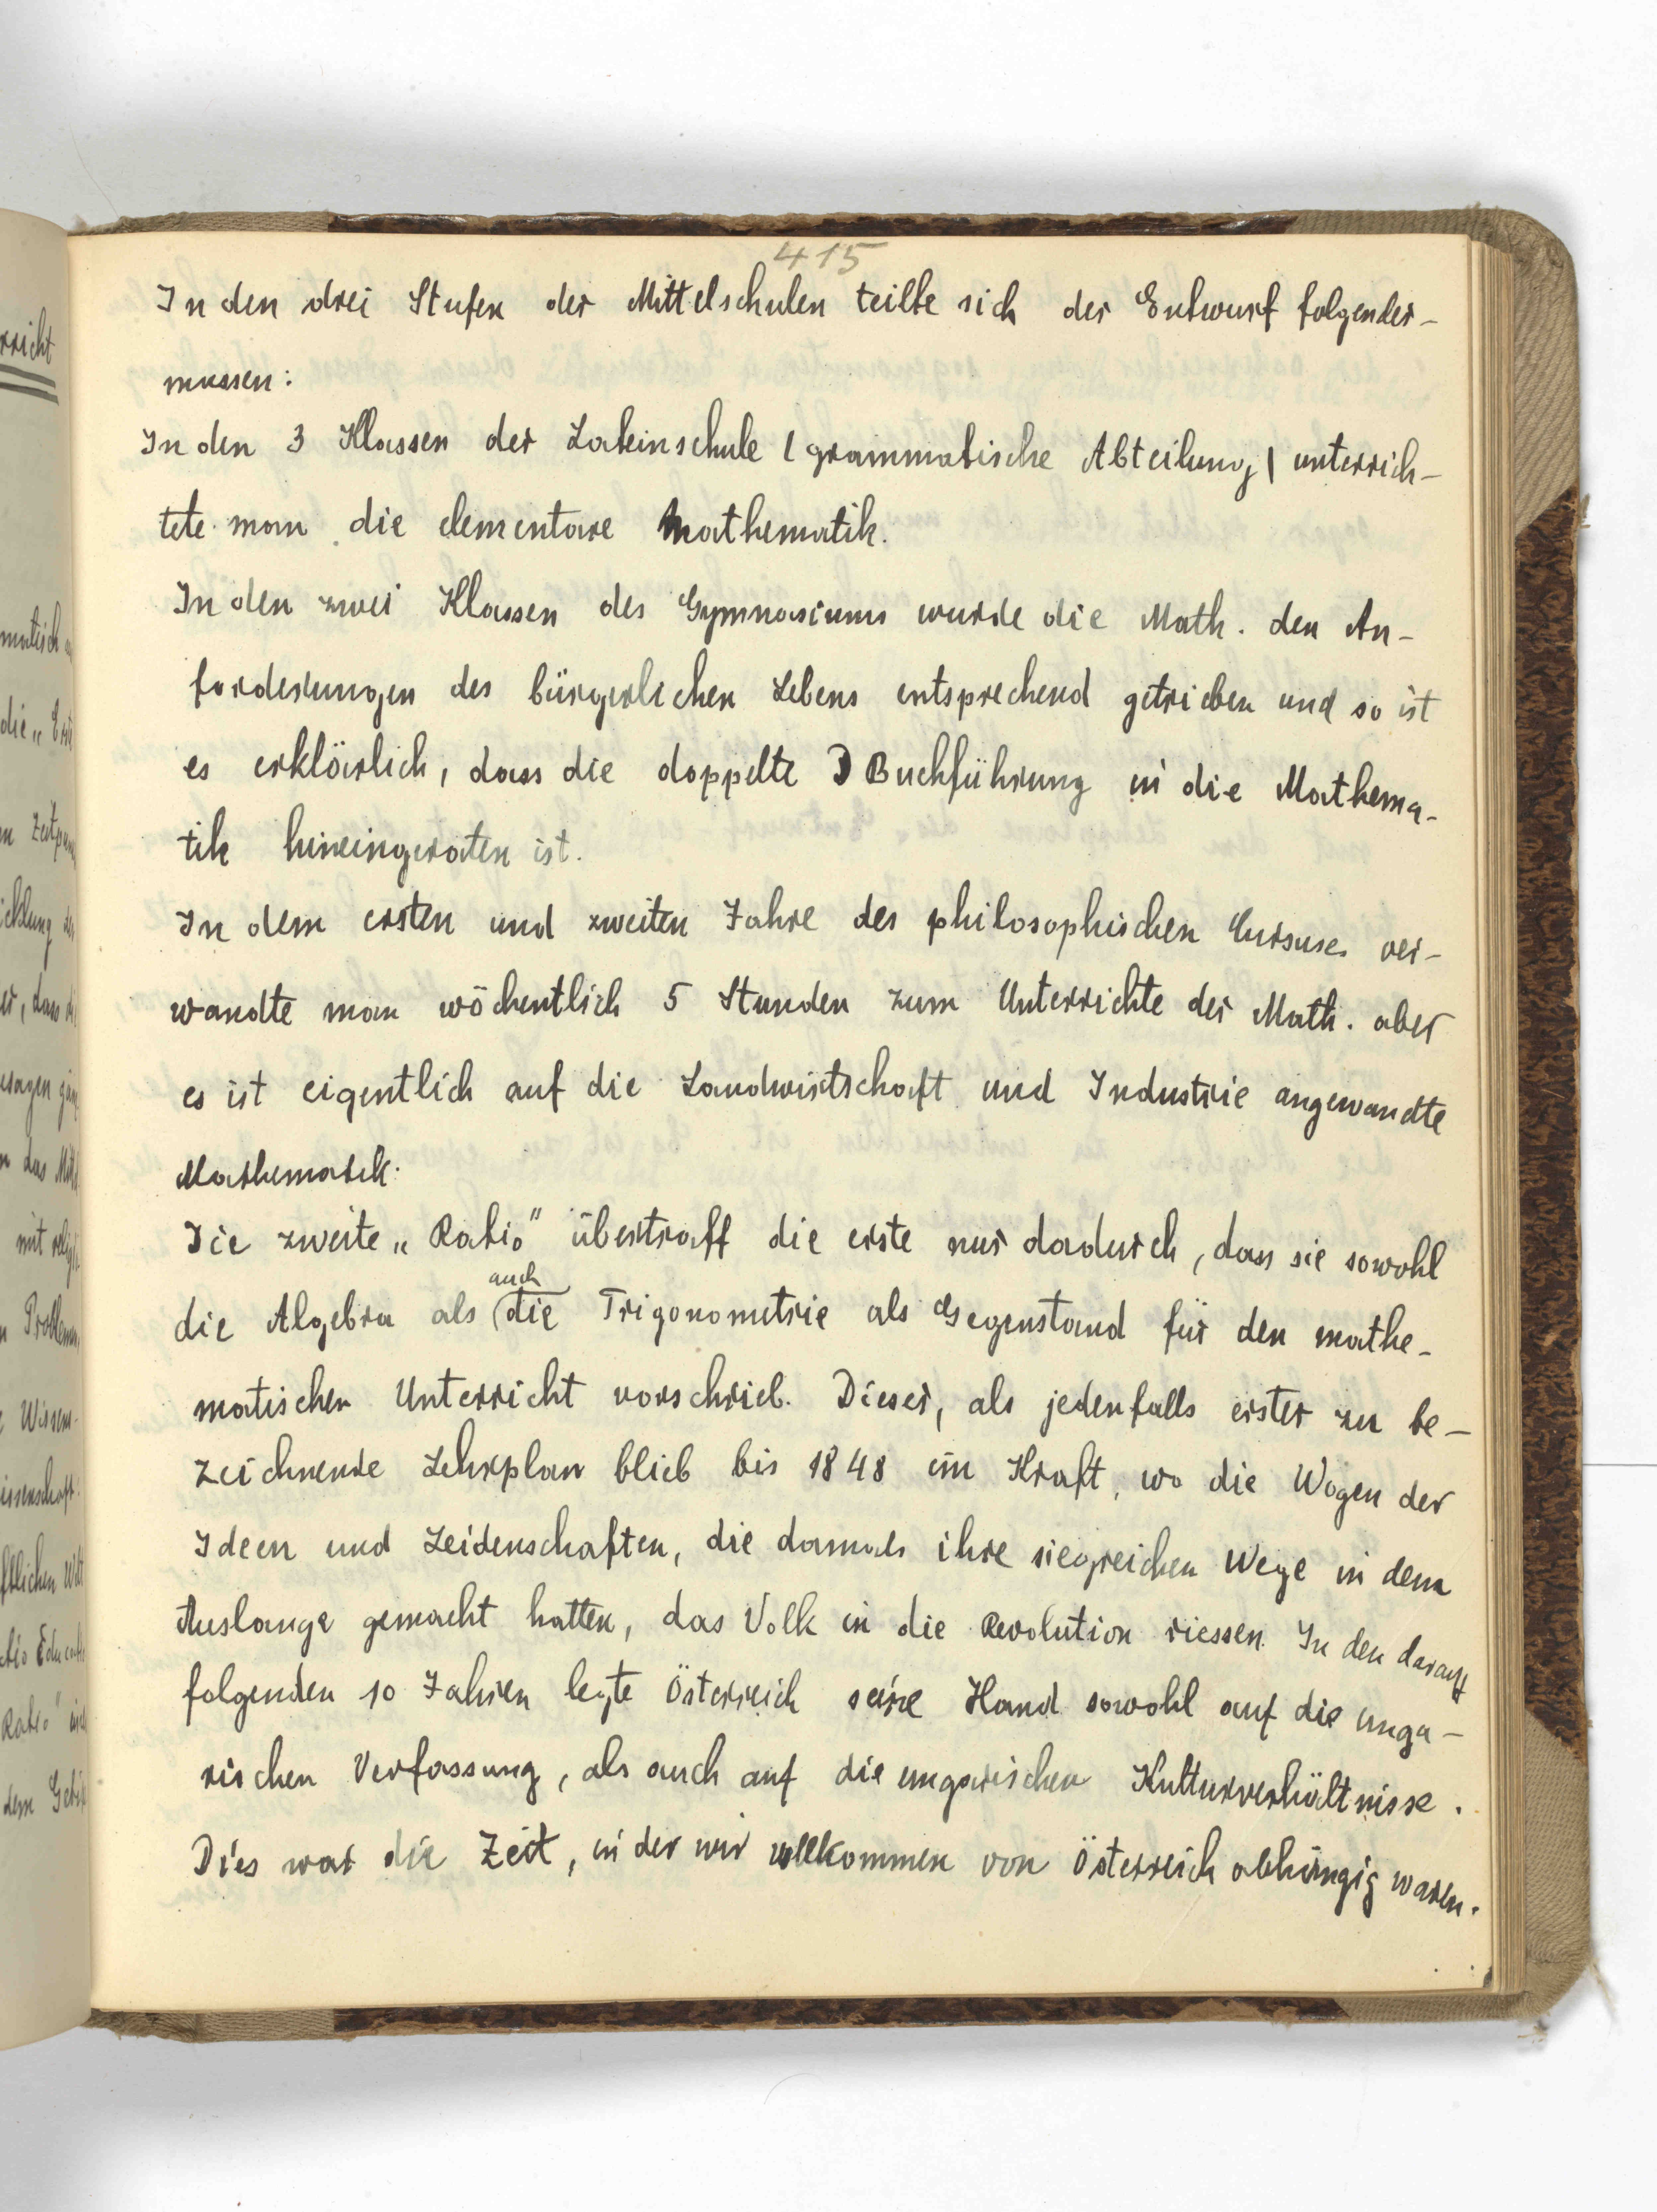 415
In den drei Stufen der Mittelschulen teilte sich der Entwurf folgender-
massen:
In den 3 Klassen der Lateinschule (grammatische Abteilung) unterrich-
tete man die elementare Mathematik.
In den zwei Klassen des Gymnasiums wurde die Math. den An-
forderungen des bürgerlichen Lebens entsprechend getrieben und so ist
es erklärlich, dass die doppelte Buchführung in die Mathema-
tik hineingeraten ist.
In dem ersten und zweiten Jahre des philosophischen Cursuses ver-
wandte man wöchentlich 5 Stunden zum Unterrichte der Math. aber
es ist eigentlich auf die Landwirtschaft und Industrie angewandte
Mathematik.
Die zweite „Ratio" übertraff die erste nur dadurch, dass sie sowohl
auch
die Algebra als (die Trigonometrie als Gegenstand für den mathe-
matischen Unterricht vorschrieb. Dieser, als jedenfalls erster zu be-
zeichnende Lehrplan blieb bis 1848 in Kraft, wo die Wogen der
Ideen und Leidenschaften, die damals ihre siegreichen Wege in dem
Auslange gemacht hatten, das Volk in die Revolution riessen. In den darauf
folgenden 10 Jahren legte Österreich seine Hand sowohl auf die unga-
rischen Verfassung, als auch auf die ungarischen Kulturverhältnisse.
Dies war die Zeit, in der wir vollkommen von Österreich abhängig waren.